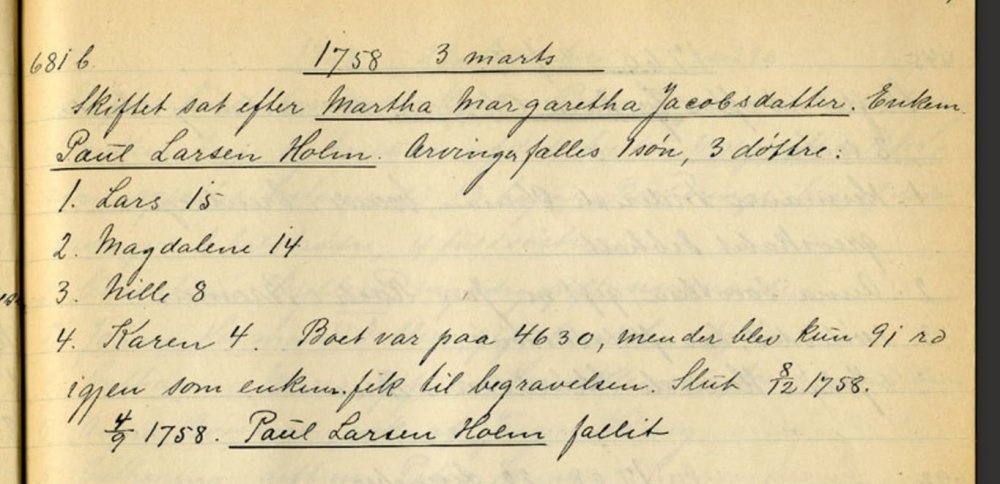 681 b. 1758 3 marts
Skiftet sat efter Martha Margaretha Jacobsdatter. Enkem.
Paul Larsen Holm. Arvinger falles 1 søn, 3 døttre:
1. Lars 15
2. Magdalene 14
3. Nille 8
4. Karen 4. Boet var paa 4630, men der blev kun 91 rd
igjen som enkem. fik til begravelsen. Slut 8/12 1758.
4/9 1758. Paul Larsen Holm fallit